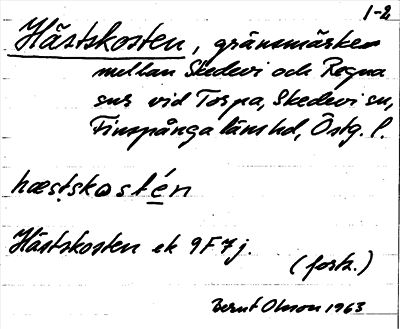 1-2
Hästskosten, gränsmärke
mellan Skedevi och Regna
snr vid Torpa, Skedevi sn,
Finspånga länshd, Östg. l.
hæstskostén
Hästskosten ek 9F7j.
(forts.)
Bernt Olsson 1963